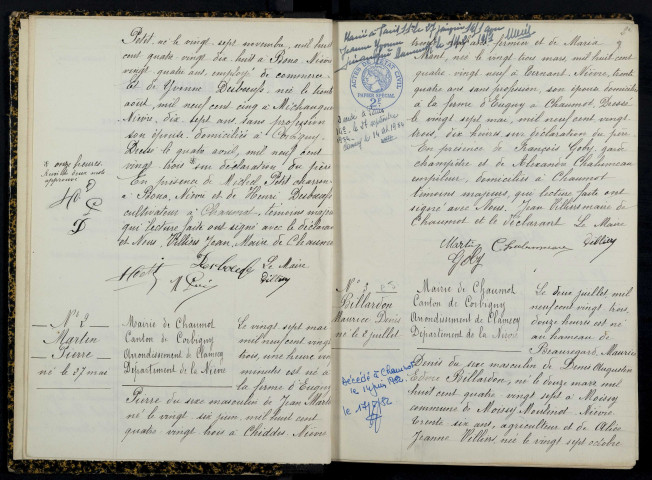 Petit, né le vingt sept novembre, mil huit
cent quatre vingt dix-huit à Bona Nièvre
vingt quatre ans, employé de commerce
et de Yvonne Desboeufs née le trente
août, mil neuf cent cinq à Michaugues
Nièvre, dix sept ans, sans profession
son épouse domiciliés à Corbigny.
Dressé le quatre août, mil neuf cent
vingt trois sur déclaration du père
En présence de Michel Petit charron
à Bona, Nièvre et de Henri Desboeufs
cultivateur à Chaumot, témoins majeurs
qui lecture faite ont signé avec le déclarant
et Nous, Villiers Jean, Maire de Chaumot
onze heures.
Desboeufs Le Maire
Villiers
N° 2
Martin
Pierre
né le 27 mai
Mairie de Chaumot
Canton de Corbigny
Arrondissement de Clamecy
Département de la Nièvre
Le vingt sept mai
mil neuf cent vingt
trois, une heure
minutes est né à
la ferme d'Eugny
Pierre du sexe masculin de Jean Martin
né le vingt six juin, mil huit cent
quatre vingt trois à Chiddes Nièvre
5
ACTES DE L'ÉTAT CIVIL
PAPIER SPÉCIAL
2F
trente neuf ans fermier et de Maria
née le vingt trois mars, mil huit cent
quatre vingt neuf à Ternant Nièvre, trente
quatre ans sans profession, son épouse domiciliés
à la ferme d'Eugny à Chaumot. Dressé
le vingt sept mai, mil neuf cent vingt
trois, dix heures sur déclaration du père
En présence de François Goby garde
champêtre et de Alexandre Chalumeau
empileur, domiciliés à Chaumot
témoins majeurs, qui lecture faite ont
signé avec Nous, Jean Villiers maire de
Chaumot et le déclarant Le Maire
Martin Chalumeau Villiers
Goby
N° 3
Billardon
Maurice Denis
né le 2 juillet
Décédé à Chaumot
le 14 juin 1982.
le 17/6/82
Mairie de Chaumot
Canton de Corbigny
Arrondissement de Clamecy
Département de la Nièvre
Le deux juillet, mil
neuf cent vingt trois,
douze heures est né
au hameau de
Beauregard, Maurice
Denis du sexe masculin de Denis Augustin
Edme Billardon, né le douze mars, mil
huit cent quatre vingt sept à Moissy
commune de Moissy Moulinot Nièvre
trente six ans, agriculteur et de Alice
Jeanne Villiers, née le vingt sept octobre